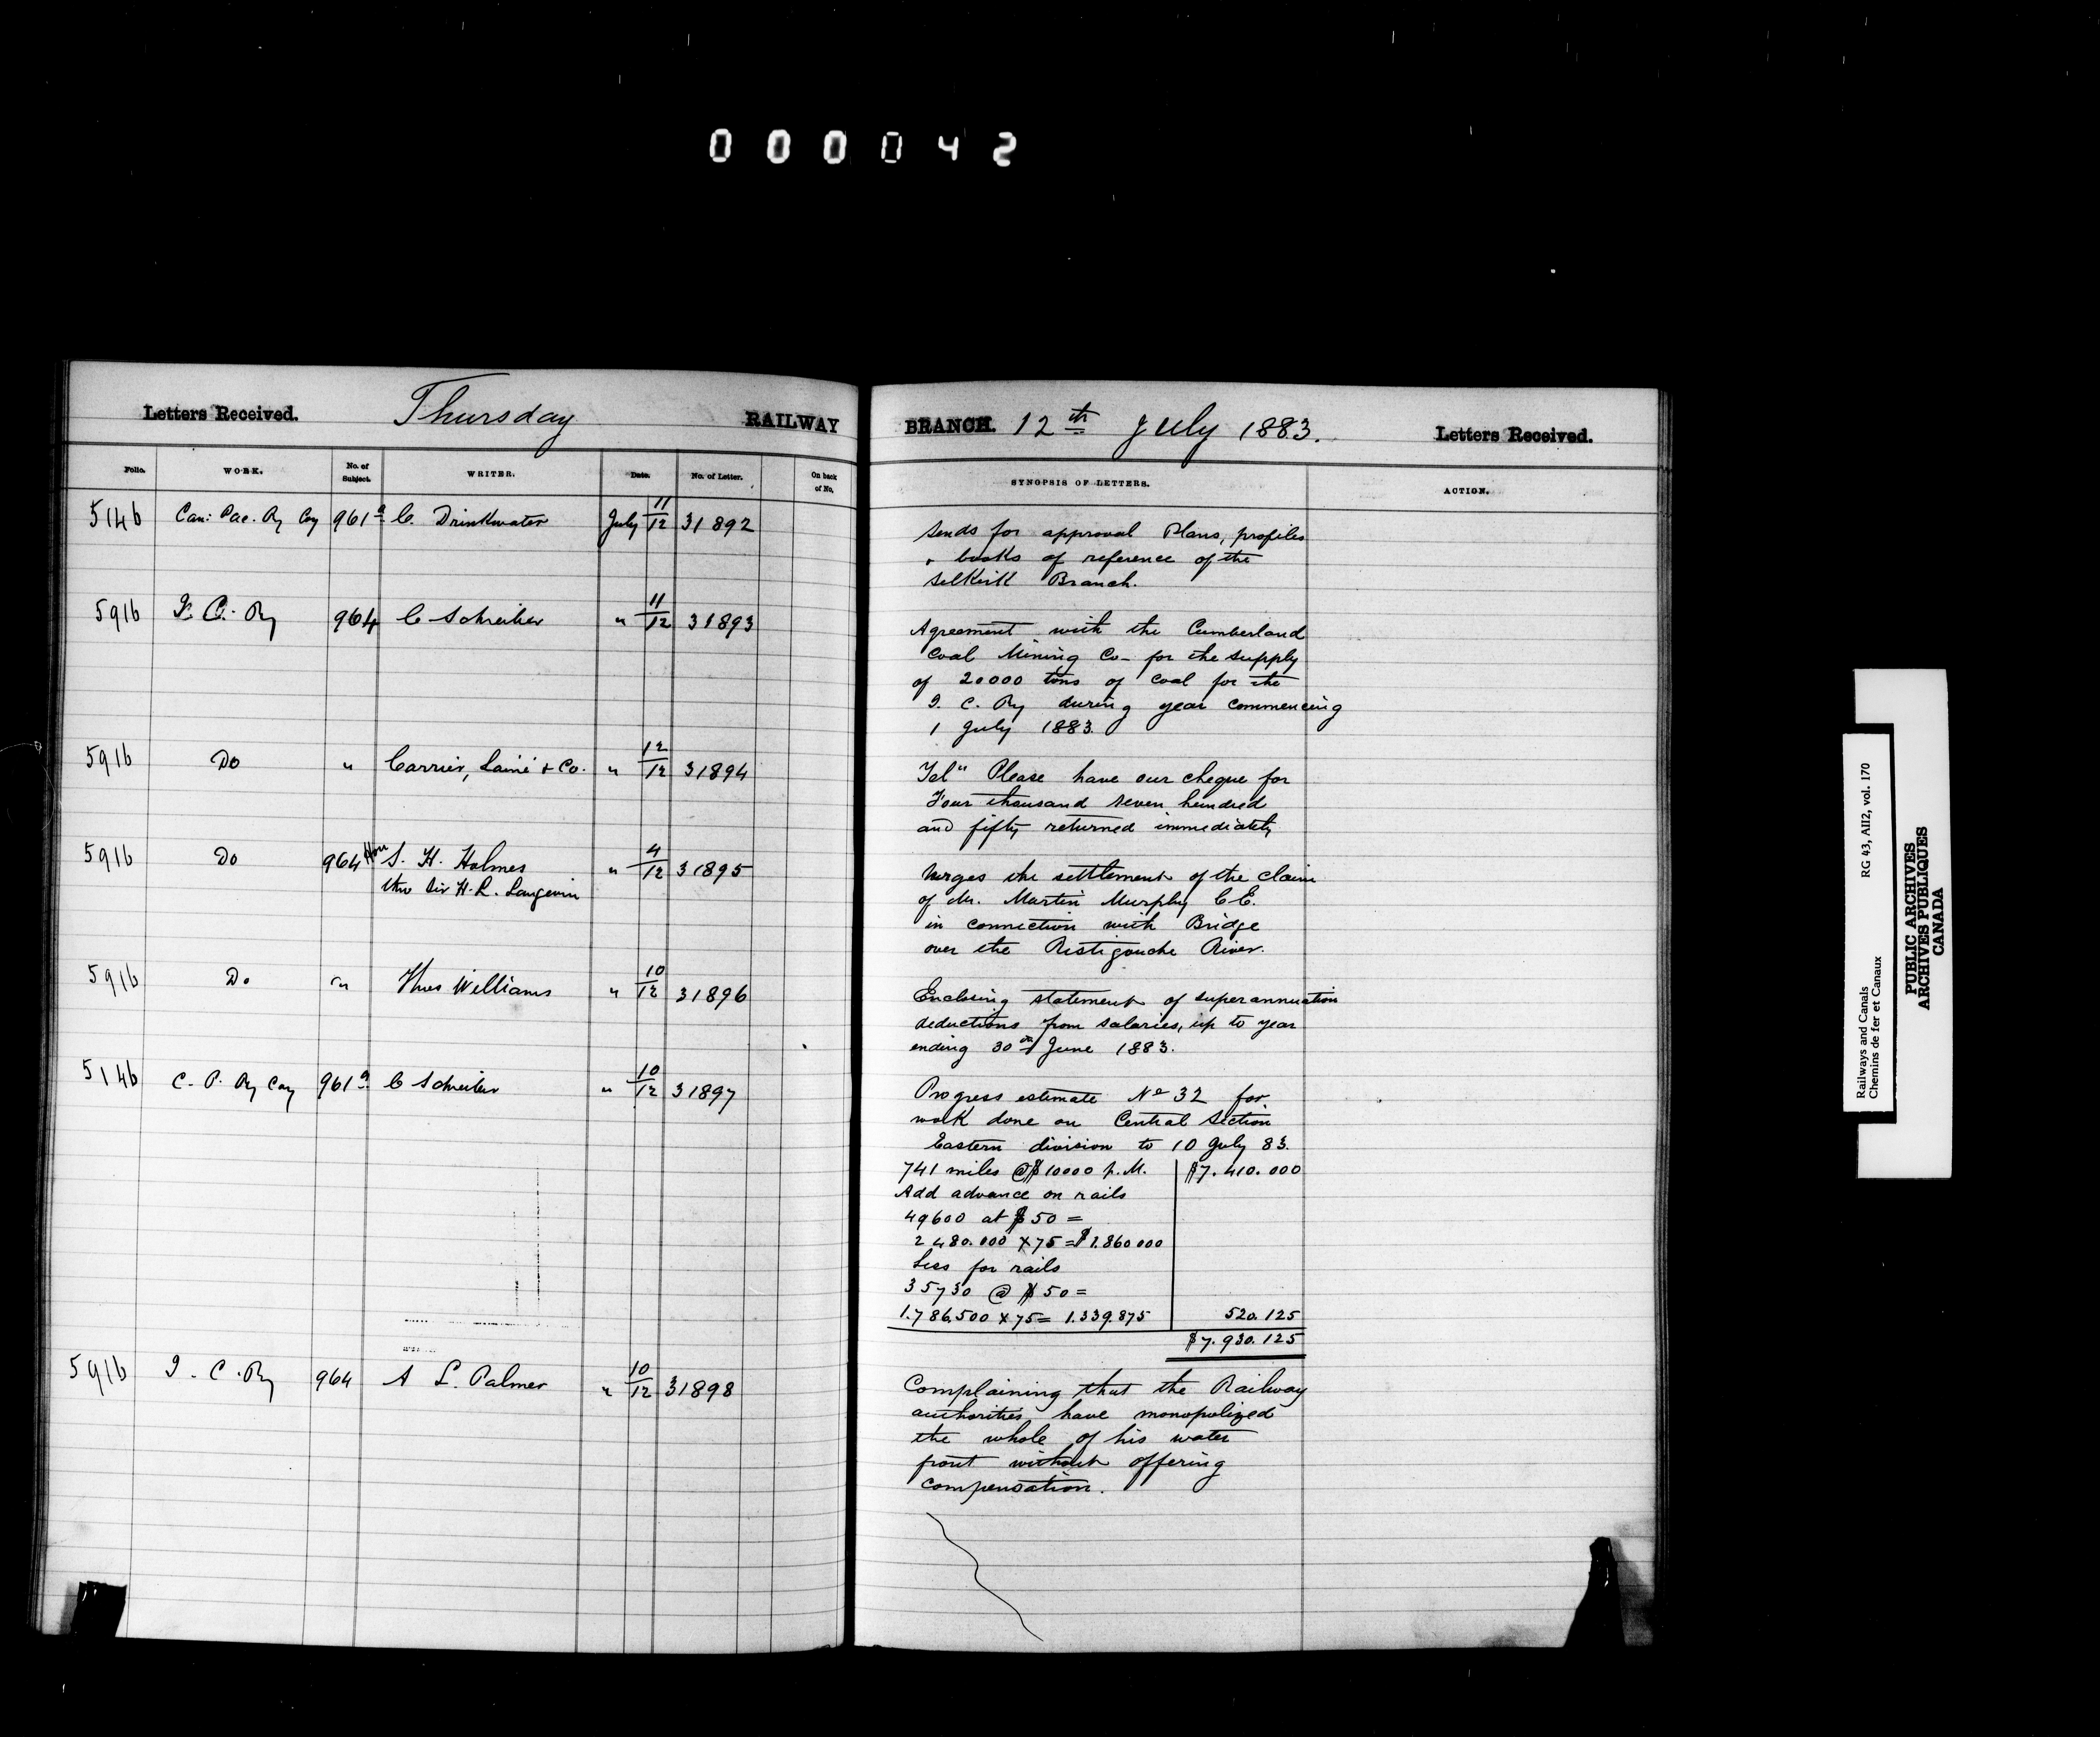 000042
Letters Received. Thursday RAILWAY BRANCH. 12th July 1883. Letters Received.
Folio. WORK. No. of Subject. WRITER. Date. No. of Letter. On back of No. SYNOPSIS OF LETTERS. ACTION.
5146 Can: Pac. Ry Coy 961a C. Drinkwater July 11/12 31892
Sends for approval Plans, profiles
" books of reference of the
Selkirk Branch.
5916 I. C. Ry 964 C Schreiber " 11/12 31893
Agreement with the Cumberland
Coal Mining Co- for the supply
of 20000 tons of coal for the
I. C. Ry during year commencing
1 July 1883.
5916 Do " Carrier, Lainé & Co. " 12/12 31894
Tel" Please have our cheque for
Four thousand seven hundred
and fifty returned immediately
5916 Do 964 Hon S. H. Holmes " 4/12 31895
thro Sir H. L. Langevin
Urges the settlement of the claim
of Mr. Martin Murphy C.E.
in connection with Bridge
over the Ristigouche River.
5916 Do " Thos Williams " 10/12 31896
Enclosing statement of superannuation
deductions from salaries, up to year
ending 30th June 1883.
5146 C. P. Ry Coy 961a C Schreiber " 10/12 31897
Progress estimate No 32 for
work done on Central Section
Eastern division to 10 July 83.
741 miles @ $10000 p. M. $7.410.000
Add advance on rails
49600 at $50 =
2 480.000 x 75 = $1.860 000
Less for rails
35730 @ $50 =
1.786.500 x 75 = 1.339.875 520.125
$7.930.125
5916 I. C. Ry 964 A L. Palmer " 10/12 31898
Complaining that the Railway
authorities have monopolized
the whole of his water
front without offering
compensation.
Railways and Canals RG 43, AII2, vol. 170
Chemins de fer et Canaux
PUBLIC ARCHIVES
ARCHIVES PUBLIQUES
CANADA